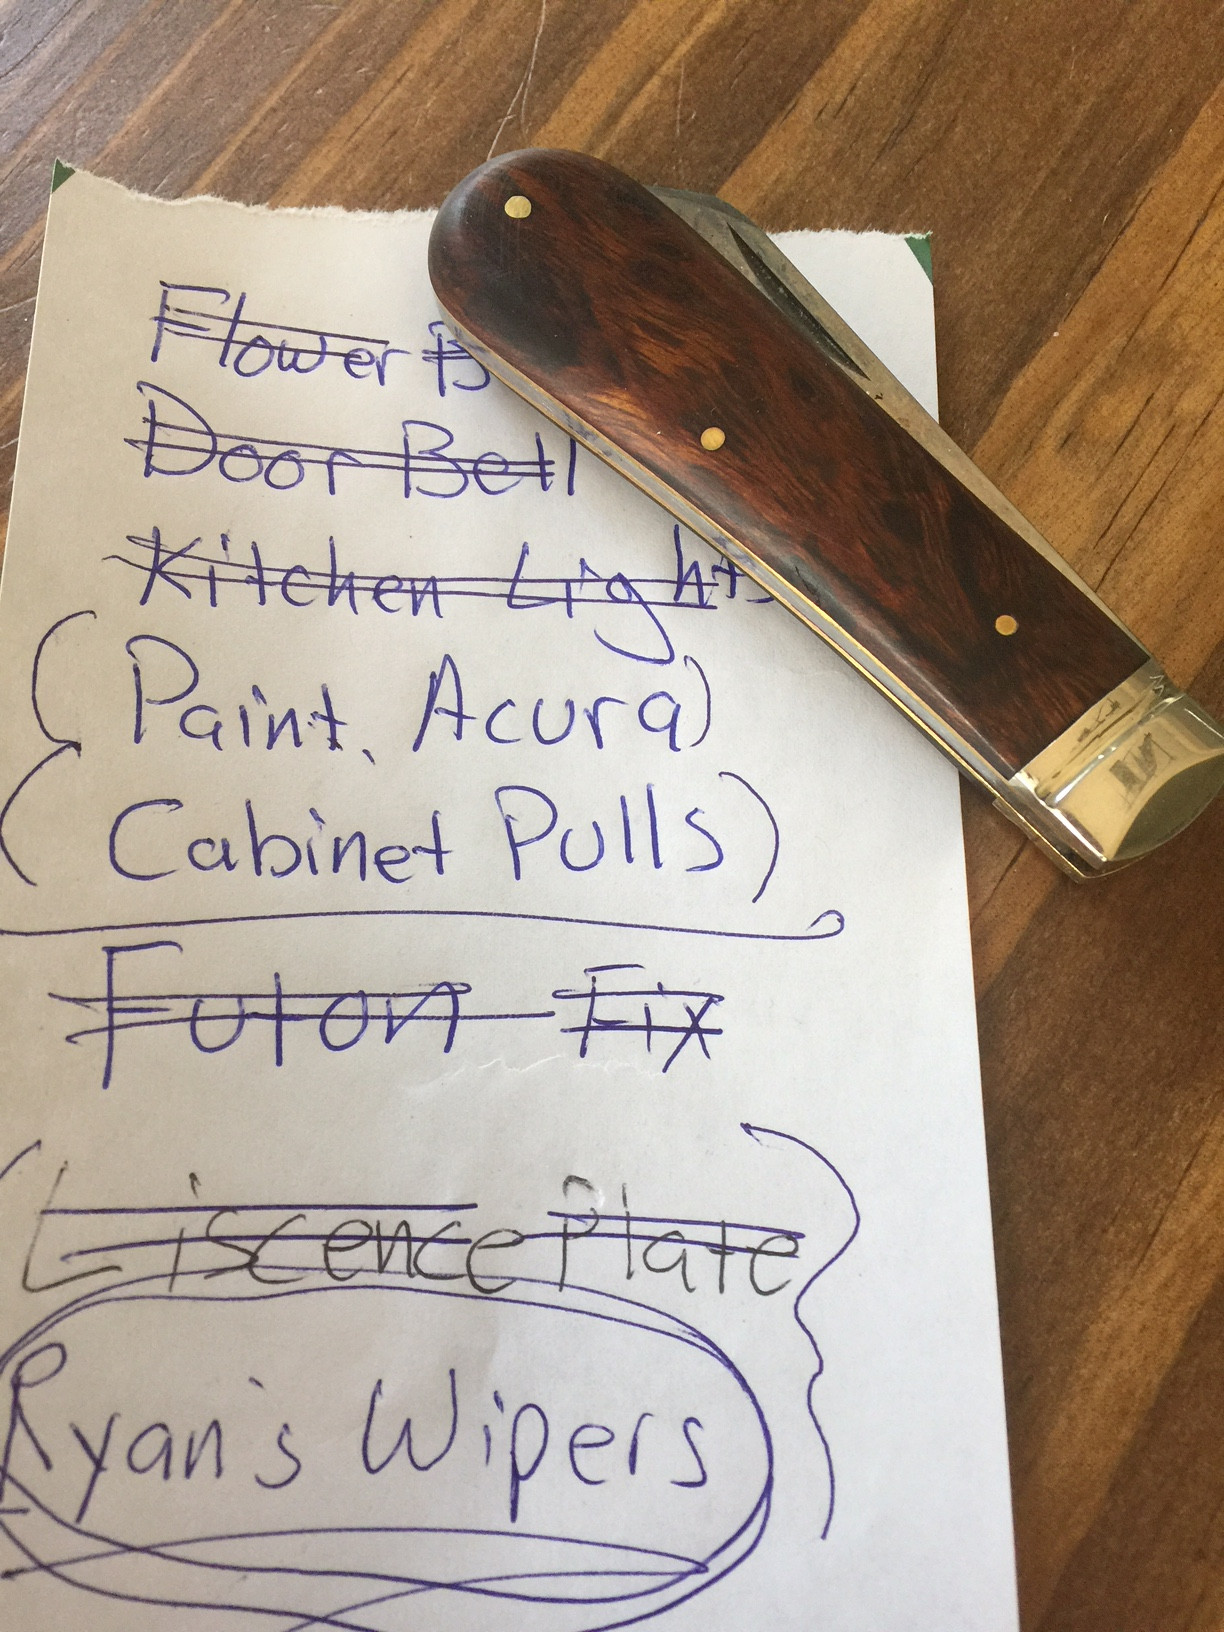 Flower
Door Bell
Kitchen Lights
(Paint, Acura)
(Cabinet Pulls)
Futon Fix
Liscence Plate
Ryan's Wipers